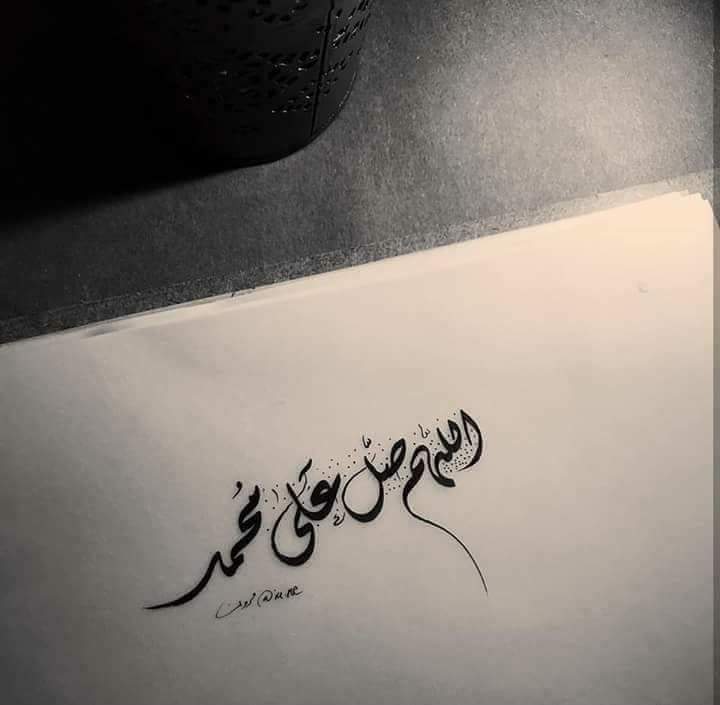 اللهم صلّ على مُحمد